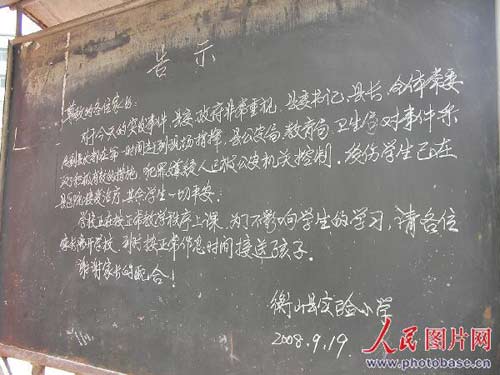 告示
尊敬的各位家长:
对于今天的突发事件,县委、政府非常重视,县委书记、县长、全体常委
及副县长都在第一时间赶到现场指挥,县公安局、教育局、卫生局对事件采
取了积极有效的措施,犯罪嫌疑人已被公安机关控制,受伤学生已在
县医院接受治疗,其余学生一切平安。
学校正在按正常教学秩序上课,为了不影响学生的学习,请各位
家长离开学校,到时按正常作息时间接送孩子。
谢谢家长的配合!
衡山县实验小学
2008.9.19
人民图片网
www.photobase.cn